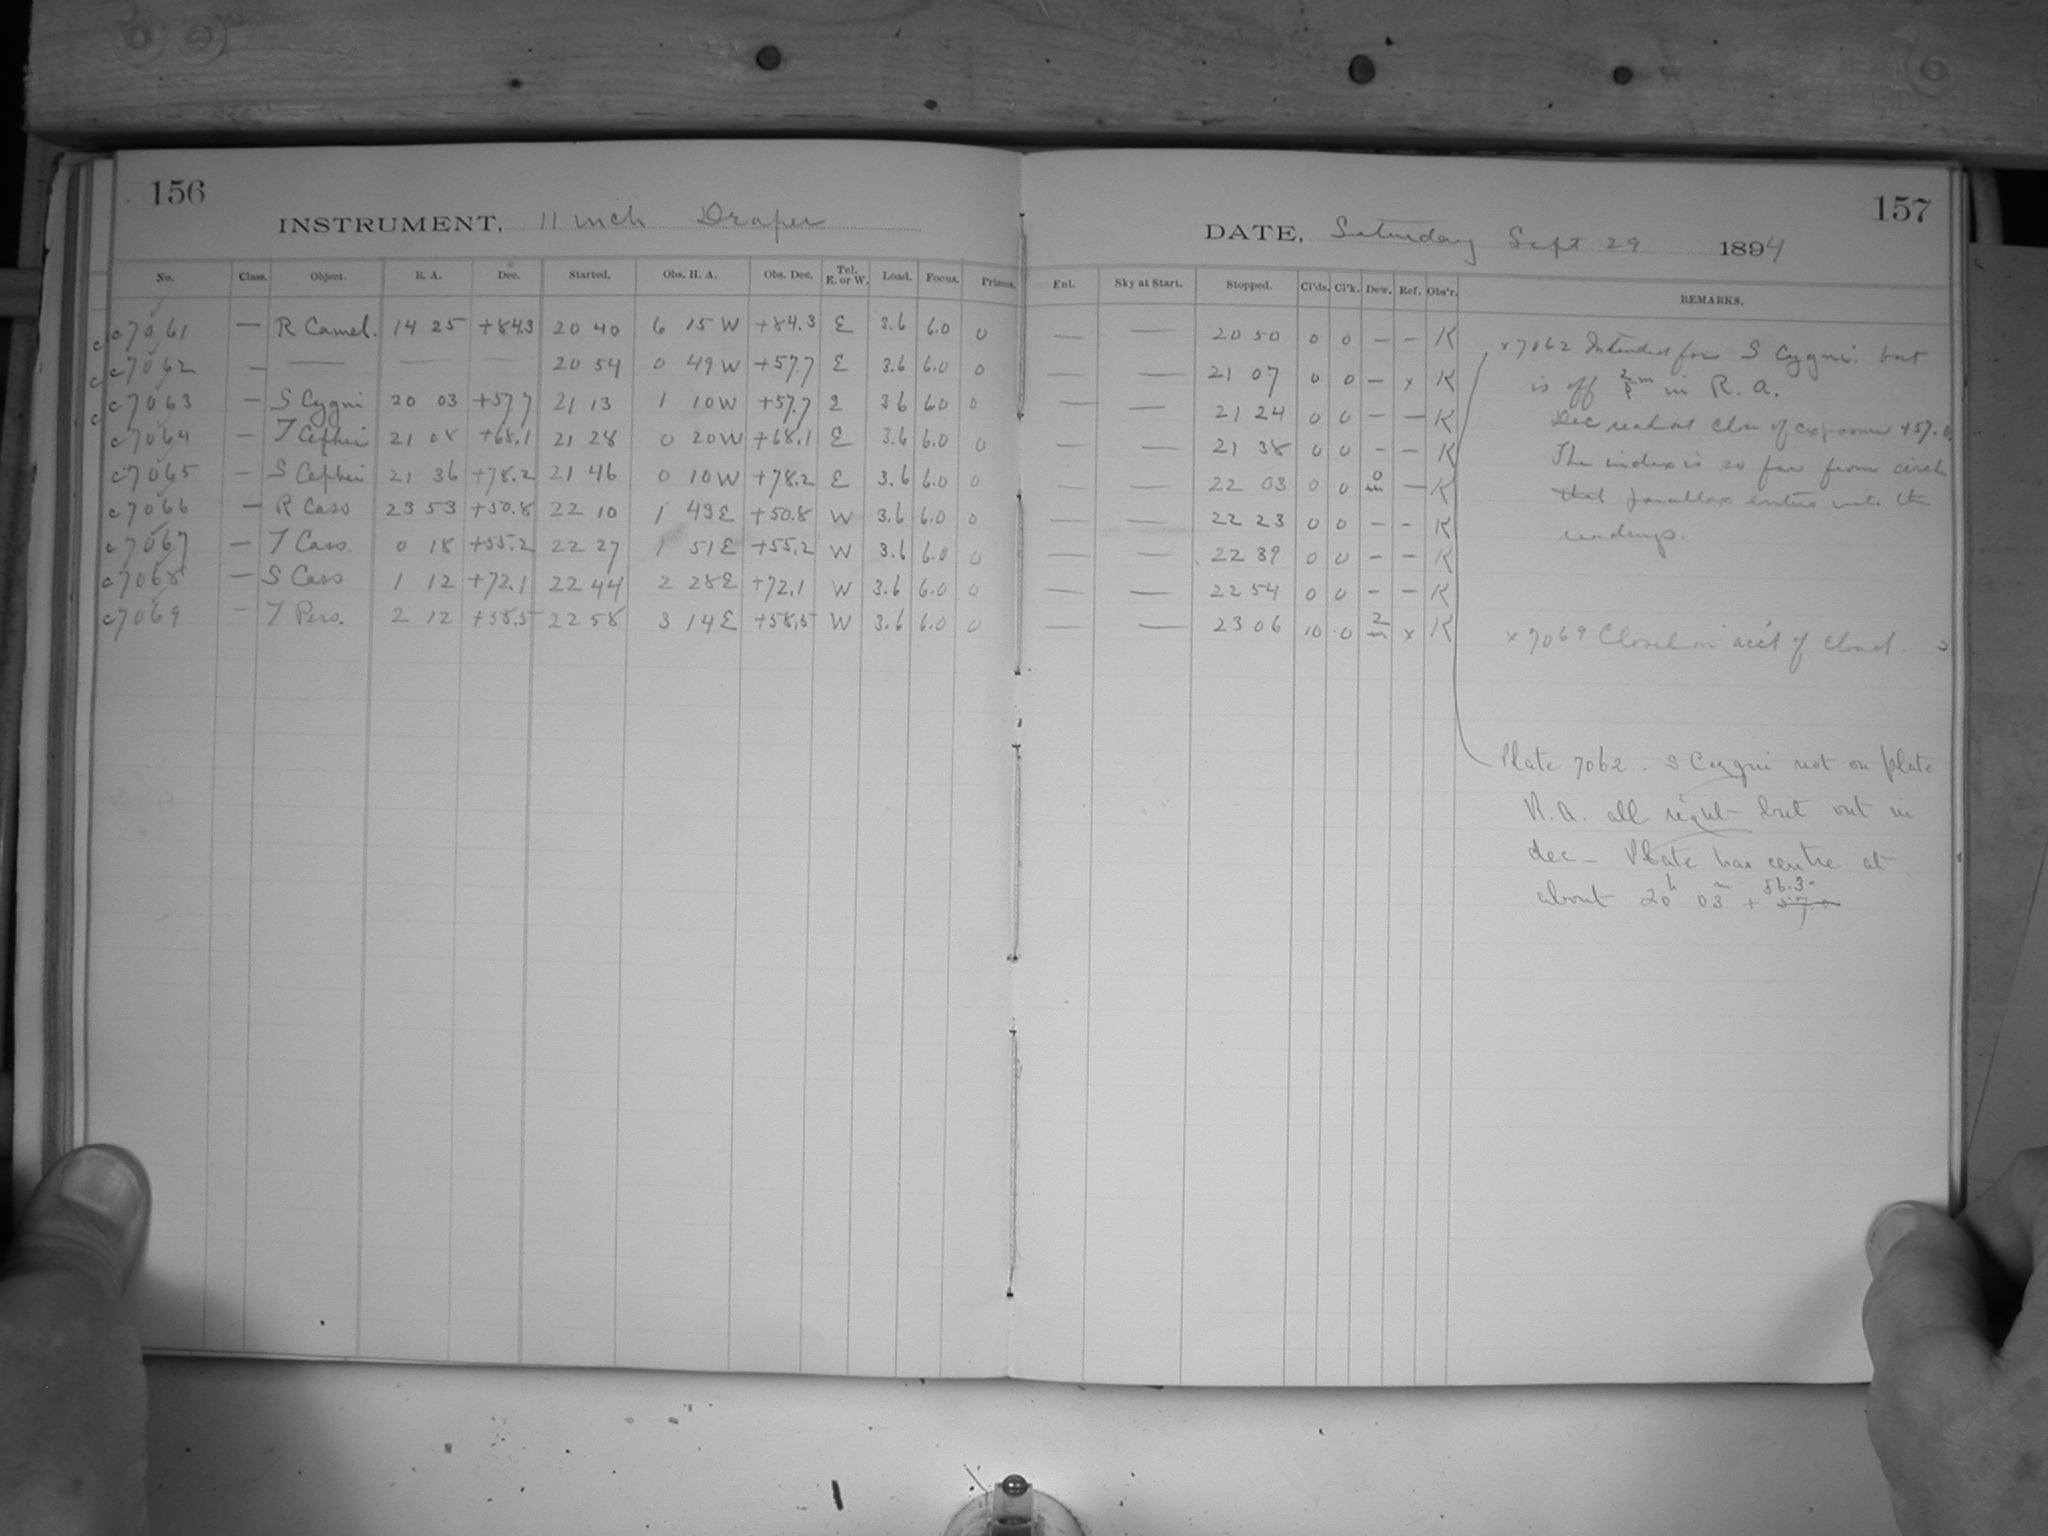 156
INSTRUMENT, 11 inch Draper
No. Class. Object. R. A. Dec. Started. Obs. H. A. Obs. Dec. Tel. E. or W. Load. Focus. Prisms.
c7061 — R Camel. 14 25 +84.3 20 40 6 15 W +84.3 E 3.6 6.0 0
c7062 — — — — 20 54 0 49 W +57.7 E 3.6 6.0 0
c7063 — S Cygni 20 03 +57.7 21 13 1 10 W +57.7 E 3.6 6.0 0
c7064 — T Cephei 21 08 +68.1 21 28 0 20 W +68.1 E 3.6 6.0 0
c7065 — S Cephei 21 36 +78.2 21 46 0 10 W +78.2 E 3.6 6.0 0
c7066 — R Cass 23 53 +50.8 22 10 1 43 E +50.8 W 3.6 6.0 0
c7067 — T Cass. 0 18 +55.2 22 27 1 51 E +55.2 W 3.6 6.0 0
c7068 — S Cass 1 12 +72.1 22 44 2 28 E +72.1 W 3.6 6.0 0
c7069 — T Pers. 2 12 +58.5 22 58 3 14 E +58.5 W 3.6 6.0 0
157
DATE, Saturday Sept 29 1894
Enl. Sky at Start. Stopped. Cl'ds. Cl'k. Dew. Ref. Obs'r. REMARKS.
— — 20 50 0 0 — — K
— — 21 07 0 0 — x K
— — 21 24 0 0 — — K
— — 21 38 0 0 — — K
— — 22 03 0 0 0 m — K
— — 22 23 0 0 — — K
— — 22 39 0 0 — — K
— — 22 54 0 0 — — K
— — 23 06 10 0 2 m x K
x 7062 Intended for S Cygni but
is off 2m in R. A.
Dec read at close of exposure +57.0
The index is so far from circle
that parallax enters into the
readings.
x 7069 Closed on acc't of cloud.
Plate 7062 - S Cygni not on plate
R.A. all right but out in
dec — Plate has centre at
about 20h 03m + 56.3